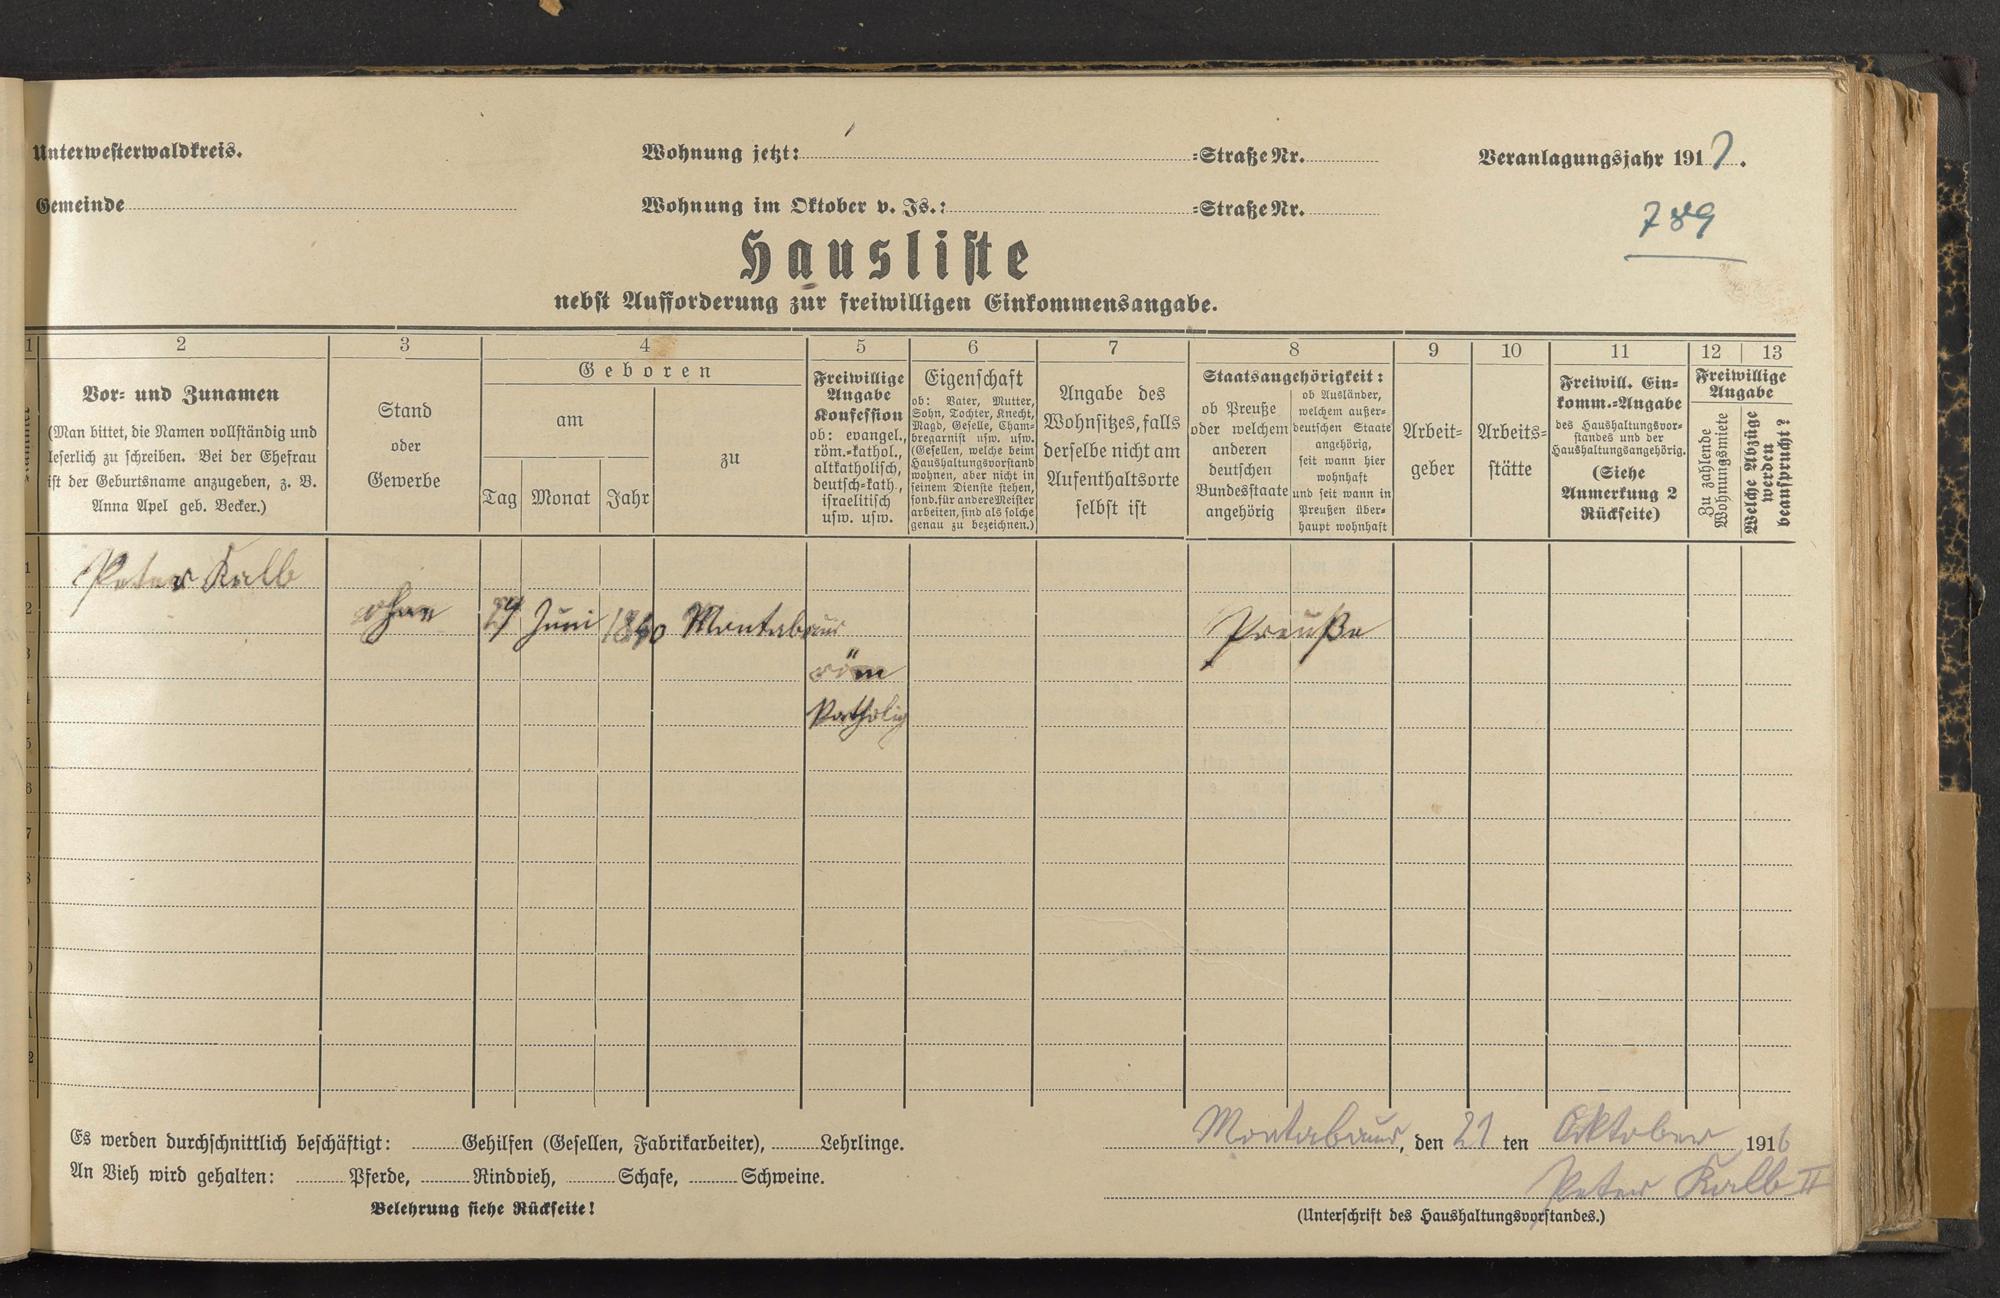 Unterwesterwaldkreis.
Wohnung jetzt: =Straße Nr.
Veranlagungsjahr 1917.
Gemeinde
Wohnung im Oktober v. Js.: =Straße Nr.
789
Hausliste
nebst Aufforderung zur freiwilligen Einkommensangabe.
1 2 3 4 5 6 7 8 9 10 11 12 13
Vor- und Zunamen
(Man bittet, die Namen vollständig und
leserlich zu schreiben. Bei der Ehefrau
ist der Geburtsname anzugeben, z. B.
Anna Apel geb. Becker.)
Stand
oder
Gewerbe
Geboren
am
Tag Monat Jahr
zu
Freiwillige
Angabe
Konfession
ob: evangel.,
röm.-kathol.,
altkatholisch,
deutsch-kath.,
israelitisch
usw. usw.
Eigenschaft
ob: Vater, Mutter,
Sohn, Tochter, Knecht,
Magd, Geselle, Cham-
bregarnist usw. usw.
(Gesellen, welche beim
Haushaltungsvorstand
wohnen, aber nicht in
seinem Dienste stehen,
sond. für andere Meister
arbeiten, sind als solche
genau zu bezeichnen.)
Angabe des
Wohnsitzes, falls
derselbe nicht am
Aufenthaltsorte
selbst ist
Staatsangehörigkeit:
ob Preuße
oder welchem
anderen
deutschen
Bundesstaate
angehörig
ob Ausländer,
welchem außer-
deutschen Staate
angehörig,
seit wann hier
wohnhaft
und seit wann in
Preußen über-
haupt wohnhaft
Arbeit-
geber
Arbeits-
stätte
Freiwill. Ein-
komm.-Angabe
des Haushaltungsvor-
standes und der
Haushaltungsangehörig.
(Siehe
Anmerkung 2
Rückseite)
Freiwillige
Angabe
Zu zahlende
Wohnungsmiete
Welche Abzüge
werden
beansprucht?
1 Peter Kalb
2 ohne Juni 1840 Montabaur Preuße
3 röm
4 Katholig
5
6
7
8
Es werden durchschnittlich beschäftigt: Gehilfen (Gesellen, Fabrikarbeiter), Lehrlinge.
Montabaur, den 21 ten Oktober 1916
An Vieh wird gehalten: Pferde, Rindvieh, Schafe, Schweine.
Peter Kalb II
Belehrung siehe Rückseite!
(Unterschrift des Haushaltungsvorstandes.)